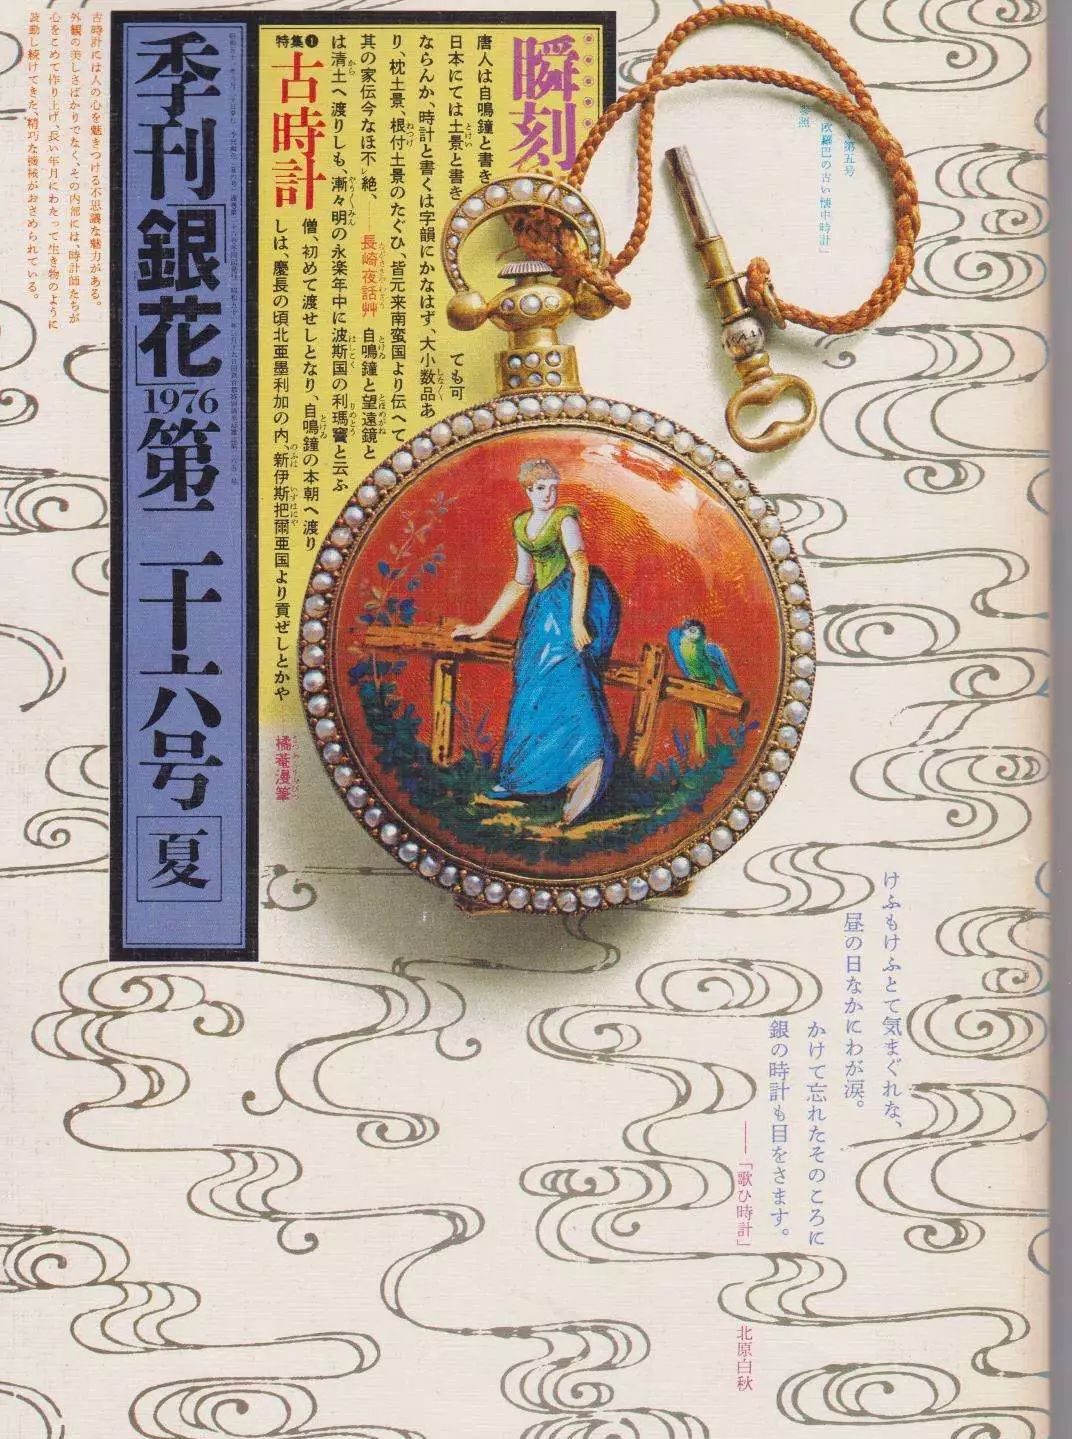 古時計には人の心を魅きつける不思議な魅力がある。
外観の美しさばかりでなく、その内部には、時計師たちが
心をこめて作り上げ、長い年月にわたって生き物のように
鼓動し続けてきた、精巧な機械がおさめられている。
季刊「銀花」1976第二十六号[夏]
瞬刻
特集❶
古時計
唐人は自鳴鐘と書き
日本にては土景と書き
ても可
ならんか、時計と書くは字韻にかなはず、大小数品あ
り、枕土景、根付土景のたぐひ、皆元来南蛮国より伝へて
其の家伝今なほ不レ絶、——長崎夜話艸
自鳴鐘と望遠鏡と
は清土へ渡りしも、漸々明の永楽年中に波斯国の利瑪竇と云ふ
僧、初めて渡せしとなり、自鳴鐘の本朝へ渡り
しは、慶長の頃北亜墨利加の内、新伊斯把爾亜国より貢ぜしとかや
橘菴漫筆
第五号
欧羅巴の古い懐中時計」
参照
けふもけふとて気まぐれな、
昼の日なかにわが涙。
かけて忘れたそのころに
銀の時計も目をさます。
——「歌ひ時計」
北原白秋